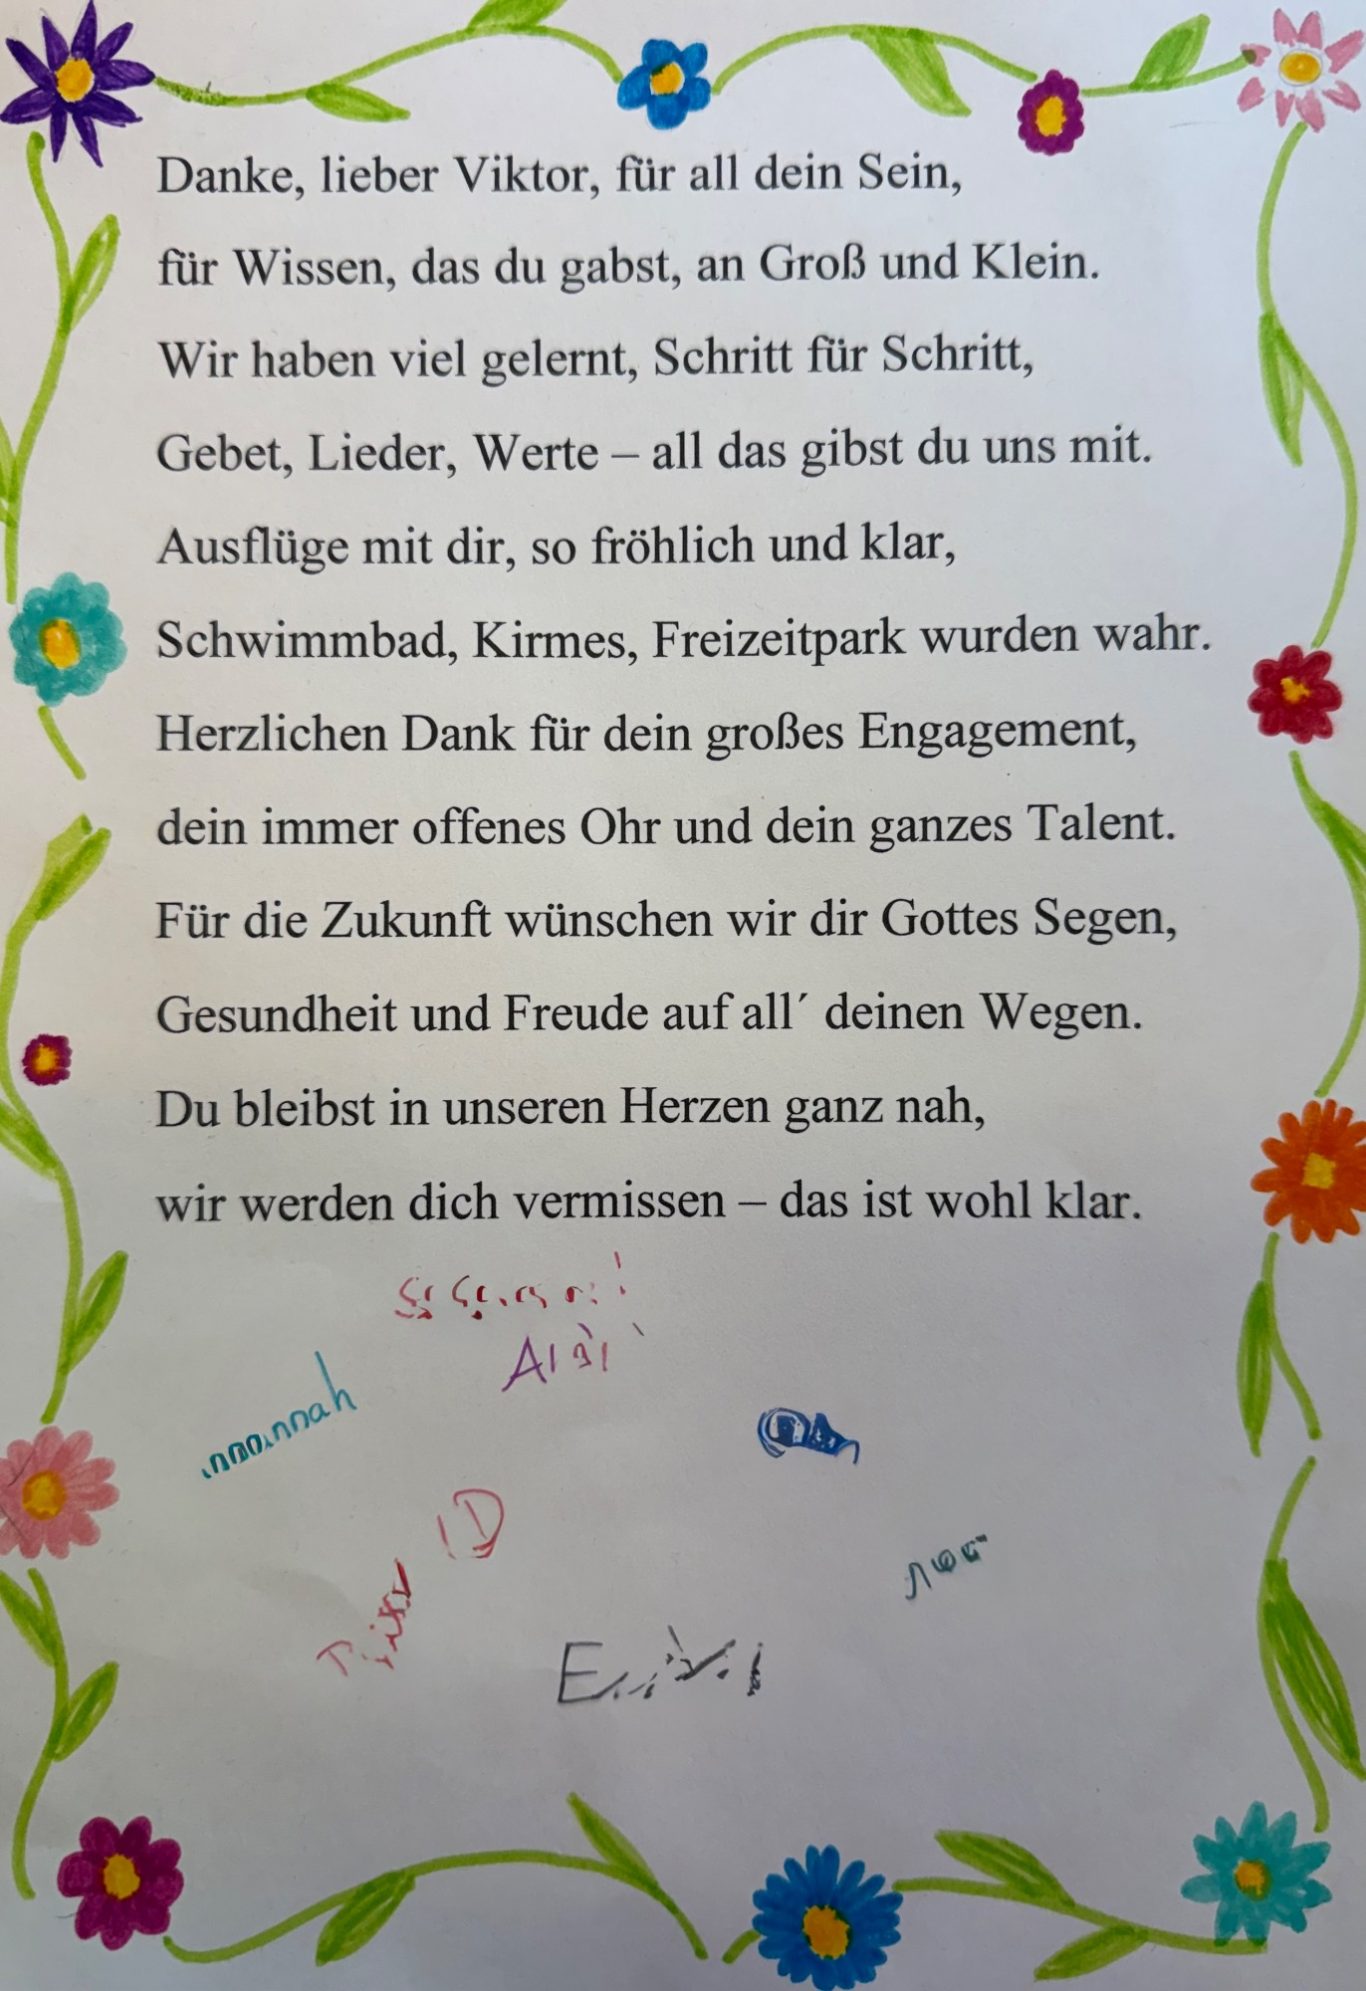 Danke, lieber Viktor, für all dein Sein,
für Wissen, das du gabst, an Groß und Klein.
Wir haben viel gelernt, Schritt für Schritt,
Gebet, Lieder, Werte – all das gibst du uns mit.
Ausflüge mit dir, so fröhlich und klar,
Schwimmbad, Kirmes, Freizeitpark wurden wahr.
Herzlichen Dank für dein großes Engagement,
dein immer offenes Ohr und dein ganzes Talent.
Für die Zukunft wünschen wir dir Gottes Segen,
Gesundheit und Freude auf all´ deinen Wegen.
Du bleibst in unseren Herzen ganz nah,
wir werden dich vermissen – das ist wohl klar.